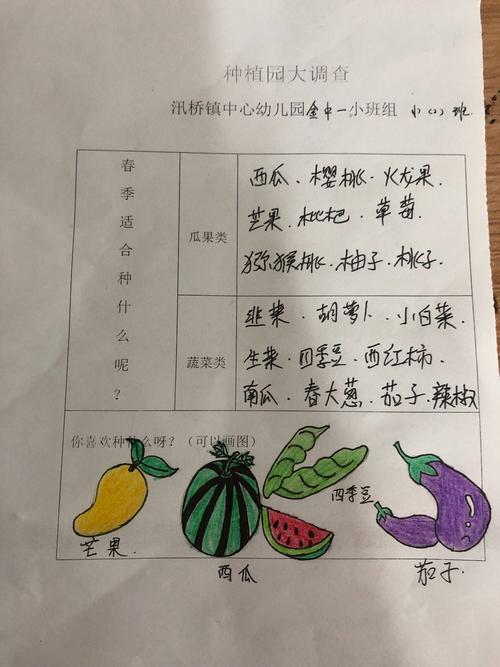 种植园大调查
汛桥镇中心幼儿园金中一小班组 小(2)班.
春季适合种什么呢？
瓜果类
西瓜、樱桃.火龙果.
芒果.枇杷.草莓.
猕猴桃.柚子.桃子.
蔬菜类
韭菜.胡萝卜.小白菜.
生菜.四季豆.西红柿.
南瓜.春大葱.茄子.辣椒
你喜欢种什么呀？（可以画图）
芒果.
西瓜
四季豆
茄子.